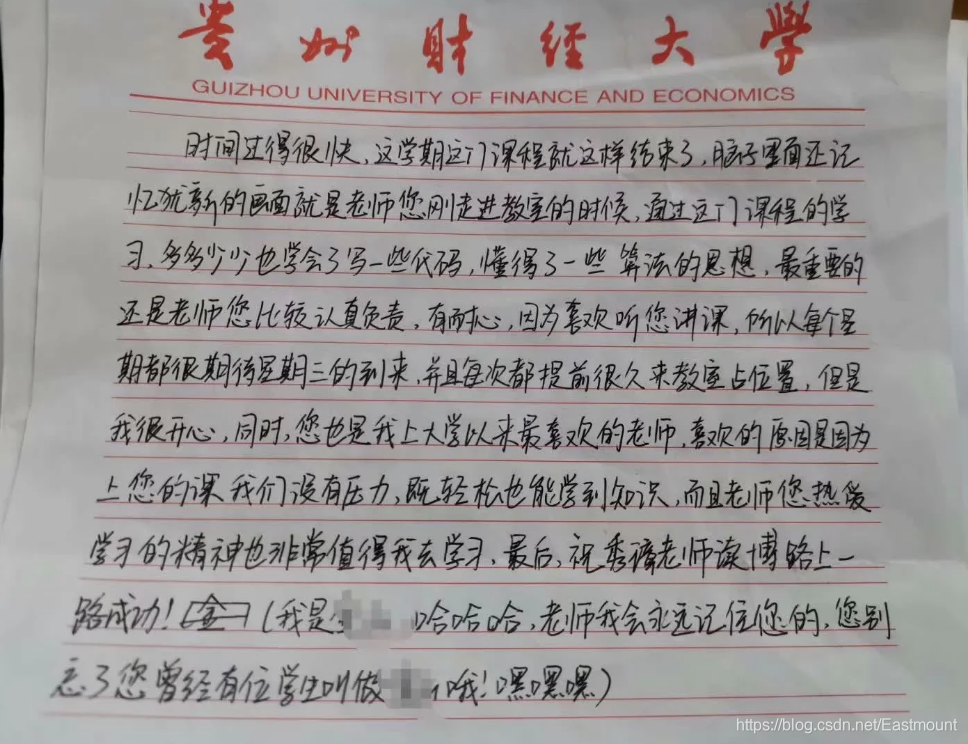 贵州财经大学
GUIZHOU UNIVERSITY OF FINANCE AND ECONOMICS
时间过得很快,这学期这门课程就这样结束了,脑子里面还记
忆犹新的画面就是老师您刚走进教室的时候,通过这门课程的学
习,多多少少也学会了写一些代码,懂得了一些算法的思想,最重要的
还是老师您比较认真负责,有耐心,因为喜欢听您讲课,所以每个星
期都很期待星期三的到来,并且每次都提前很久来教室占位置,但是
我很开心,同时,您也是我上大学以来最喜欢的老师,喜欢的原因是因为
上您的课我们没有压力,既轻松也能学到知识,而且老师您热爱
学习的精神也非常值得我去学习,最后,祝秀璋老师读博路上一
路成功!(我是 哈哈哈,老师我会永远记住您的,您别
忘了您曾经有位学生叫做 哦!嘿嘿嘿)
https://blog.csdn.net/Eastmount